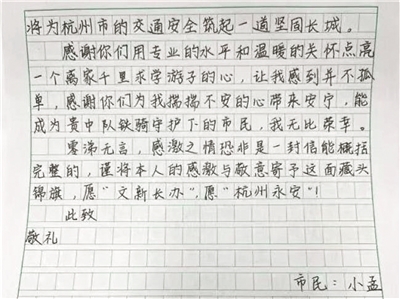 将为杭州市的交通安全筑起一道坚固长城。
感谢你们用专业的水平和温暖的关怀点亮
一个离家千里求学游子的心，让我感到并不孤
单，感谢你们为我揣揣不安的心带来安宁，能
成为贵中队铁骑守护下的市民，我无比荣幸。
零涕无言，感激之情恐非是一封信能概括
完整的，谨将本人的感激与敬意寄予这面藏头
锦旗，愿“文新长办”，愿“杭州永安”！
此致
敬礼
市民：小孟